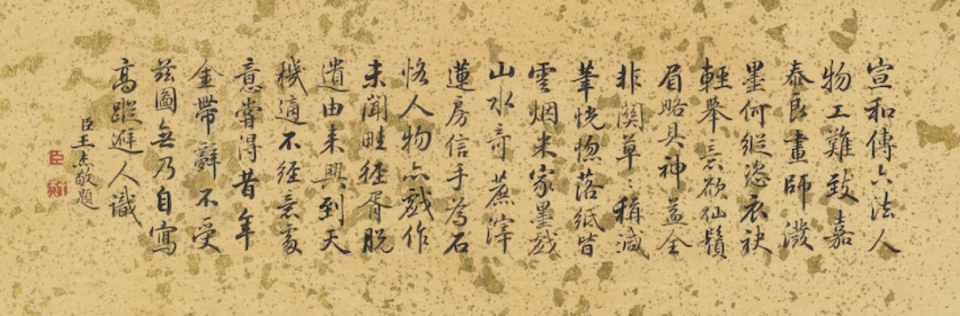 宣和傳六法人
物工難致嘉
泰良畫師潑
墨何縱恣衣袂
輕舉意欲仙鬚
眉略具神益全
非關草〻稱減
筆恍惚落紙皆
雲烟米家墨戲
山水奇蔗滓
蓮房信手為石
恪人物亦戲作
未聞畦徑胥脫
遺由來興到天
機適不經意處
意嘗得昔年
金帶辭不受
茲圖無乃自寫
高蹤避人識
臣王杰敬題
臣